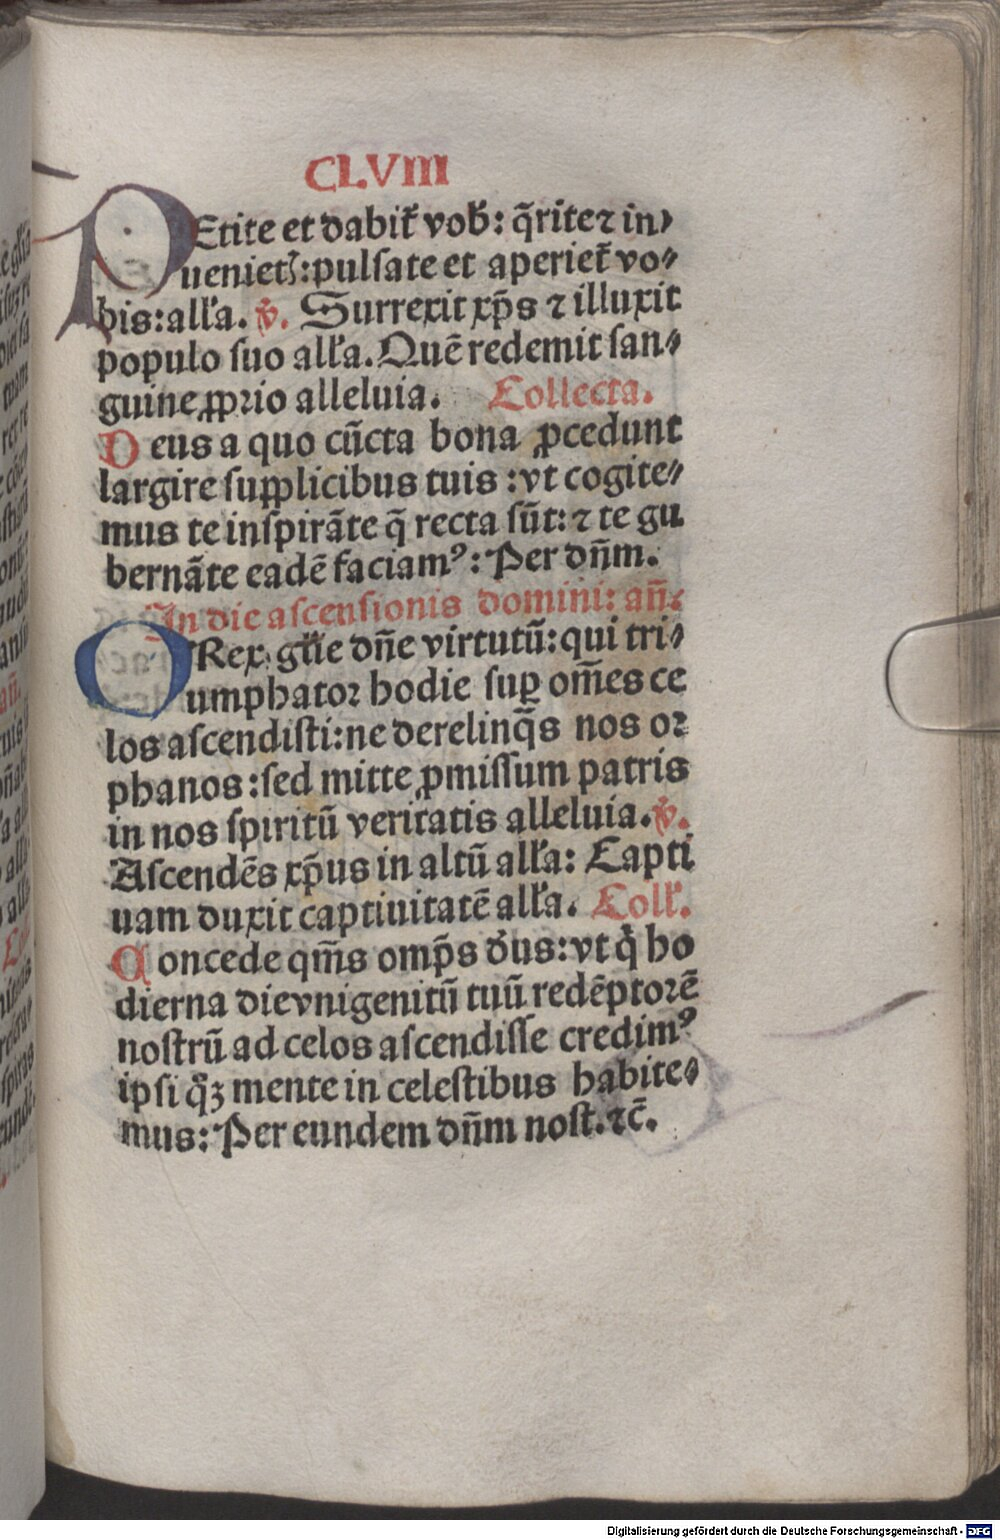 CLVIII
PEtite et dabit̃ vob̃: q̃rite ⁊ in⸗
ueniet̃: pulsate et aperiet̃ vo⸗
bis: all'a. ℣. Surrexit xp̃s ⁊ illuxit
populo suo all'a. Quē redemit san⸗
guine ꝓprio alleluia. Collecta.
Deus a quo cūcta bona ꝓcedunt
largire supplicibus tuis: vt cogite⸗
mus te inspirāte q̄ recta sūt: ⁊ te gu
bernāte eadē faciamꝰ: Per dn̄m.
In die ascensionis domini: an̄.
O Rex gl'ie dn̄e virtutū: qui tri⸗
umphator hodie suꝑ om̄es ce
los ascendisti: ne derelinq̄s nos or
phanos: sed mitte ꝓmissum patris
in nos spiritū veritatis alleluia. ℣.
Ascendēs xp̄us in altū all'a: Capti
uam duxit captiuitatē all'a. Coll'.
Concede qm̄s omp̄s de'us: vt q' ho
dierna die vnigenitū tuū redēptorē
nostrū ad celos ascendisse credimꝰ
ipsi qꝫ mente in celestibus habite⸗
mus: Per eundem dn̄m nost. ⁊c̄.
Digitalisierung gefördert durch die Deutsche Forschungsgemeinschaft - DFG